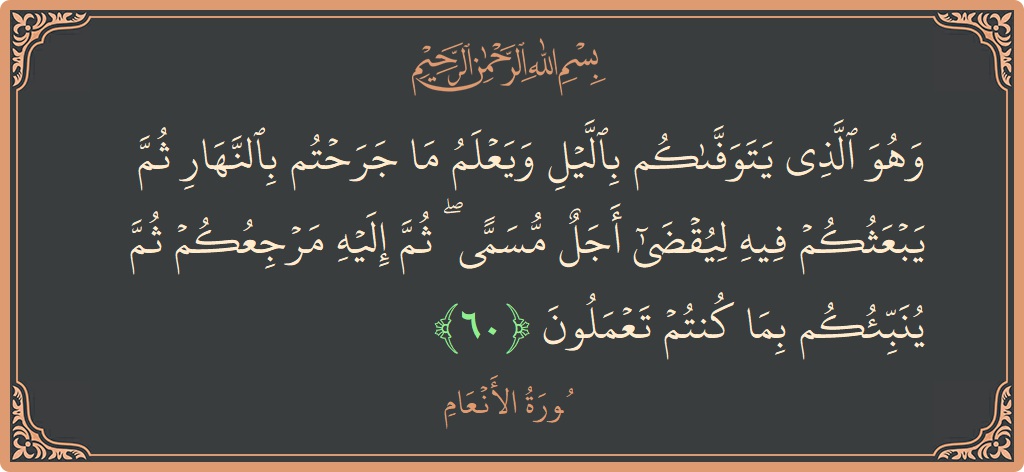 بِسْمِ اللَّهِ الرَّحْمَٰنِ الرَّحِيمِ
وَهُوَ ٱلَّذِى يَتَوَفَّىٰكُم بِٱلَّيۡلِ وَيَعۡلَمُ مَا جَرَحۡتُم بِٱلنَّهَارِ ثُمَّ
يَبۡعَثُكُمۡ فِيهِ لِيُقۡضَىٰٓ أَجَلٌ مُّسَمًّى ۖ ثُمَّ إِلَيۡهِ مَرۡجِعُكُمۡ ثُمَّ
يُنَبِّئُكُم بِمَا كُنتُمۡ تَعۡمَلُونَ ﴿٦٠﴾
سُورَةُ الأَنۡعَامِ